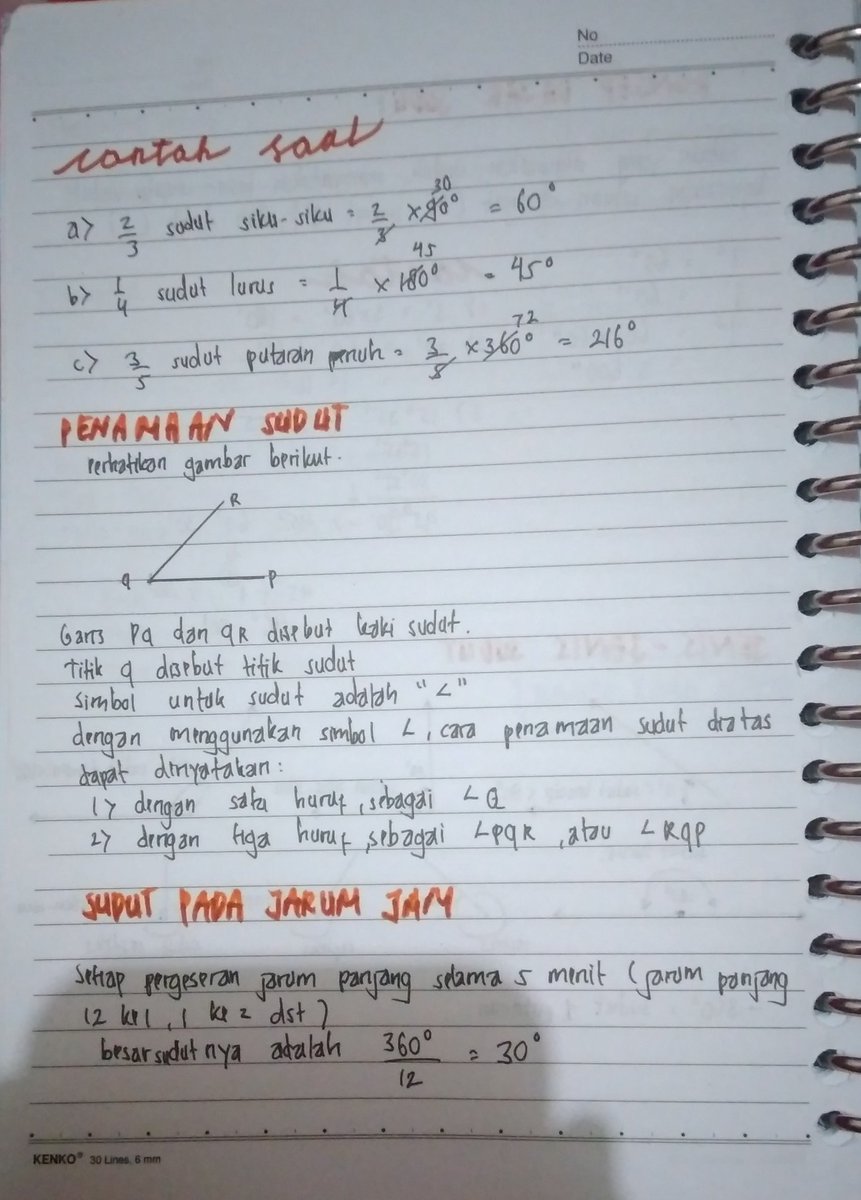 No
Date
contoh soal
a> 2/3 sudut siku-siku = 2/3 × 90° 30 = 60°
b> 1/4 sudut lurus = 1/4 × 180° 45 = 45°
c> 3/5 sudut putaran penuh = 3/5 × 360° 72 = 216°
PENAMAAN SUDUT
Perhatikan gambar berikut.
R
q P
Garis Pq dan qR disebut kaki sudut.
Titik q disebut titik sudut
simbol untuk sudut adalah "∠"
dengan menggunakan simbol ∠, cara penamaan sudut diatas
dapat dinyatakan:
1> dengan satu huruf, sebagai ∠Q
2> dengan tiga huruf, sebagai ∠pqR, atau ∠Rqp
SUDUT PADA JARUM JAM
Setiap pergeseran jarum panjang selama 5 menit (jarum panjang
12 ke 1, 1 ke 2 dst)
besar sudutnya adalah 360°/12 = 30°
KENKO® 30 Lines, 6 mm